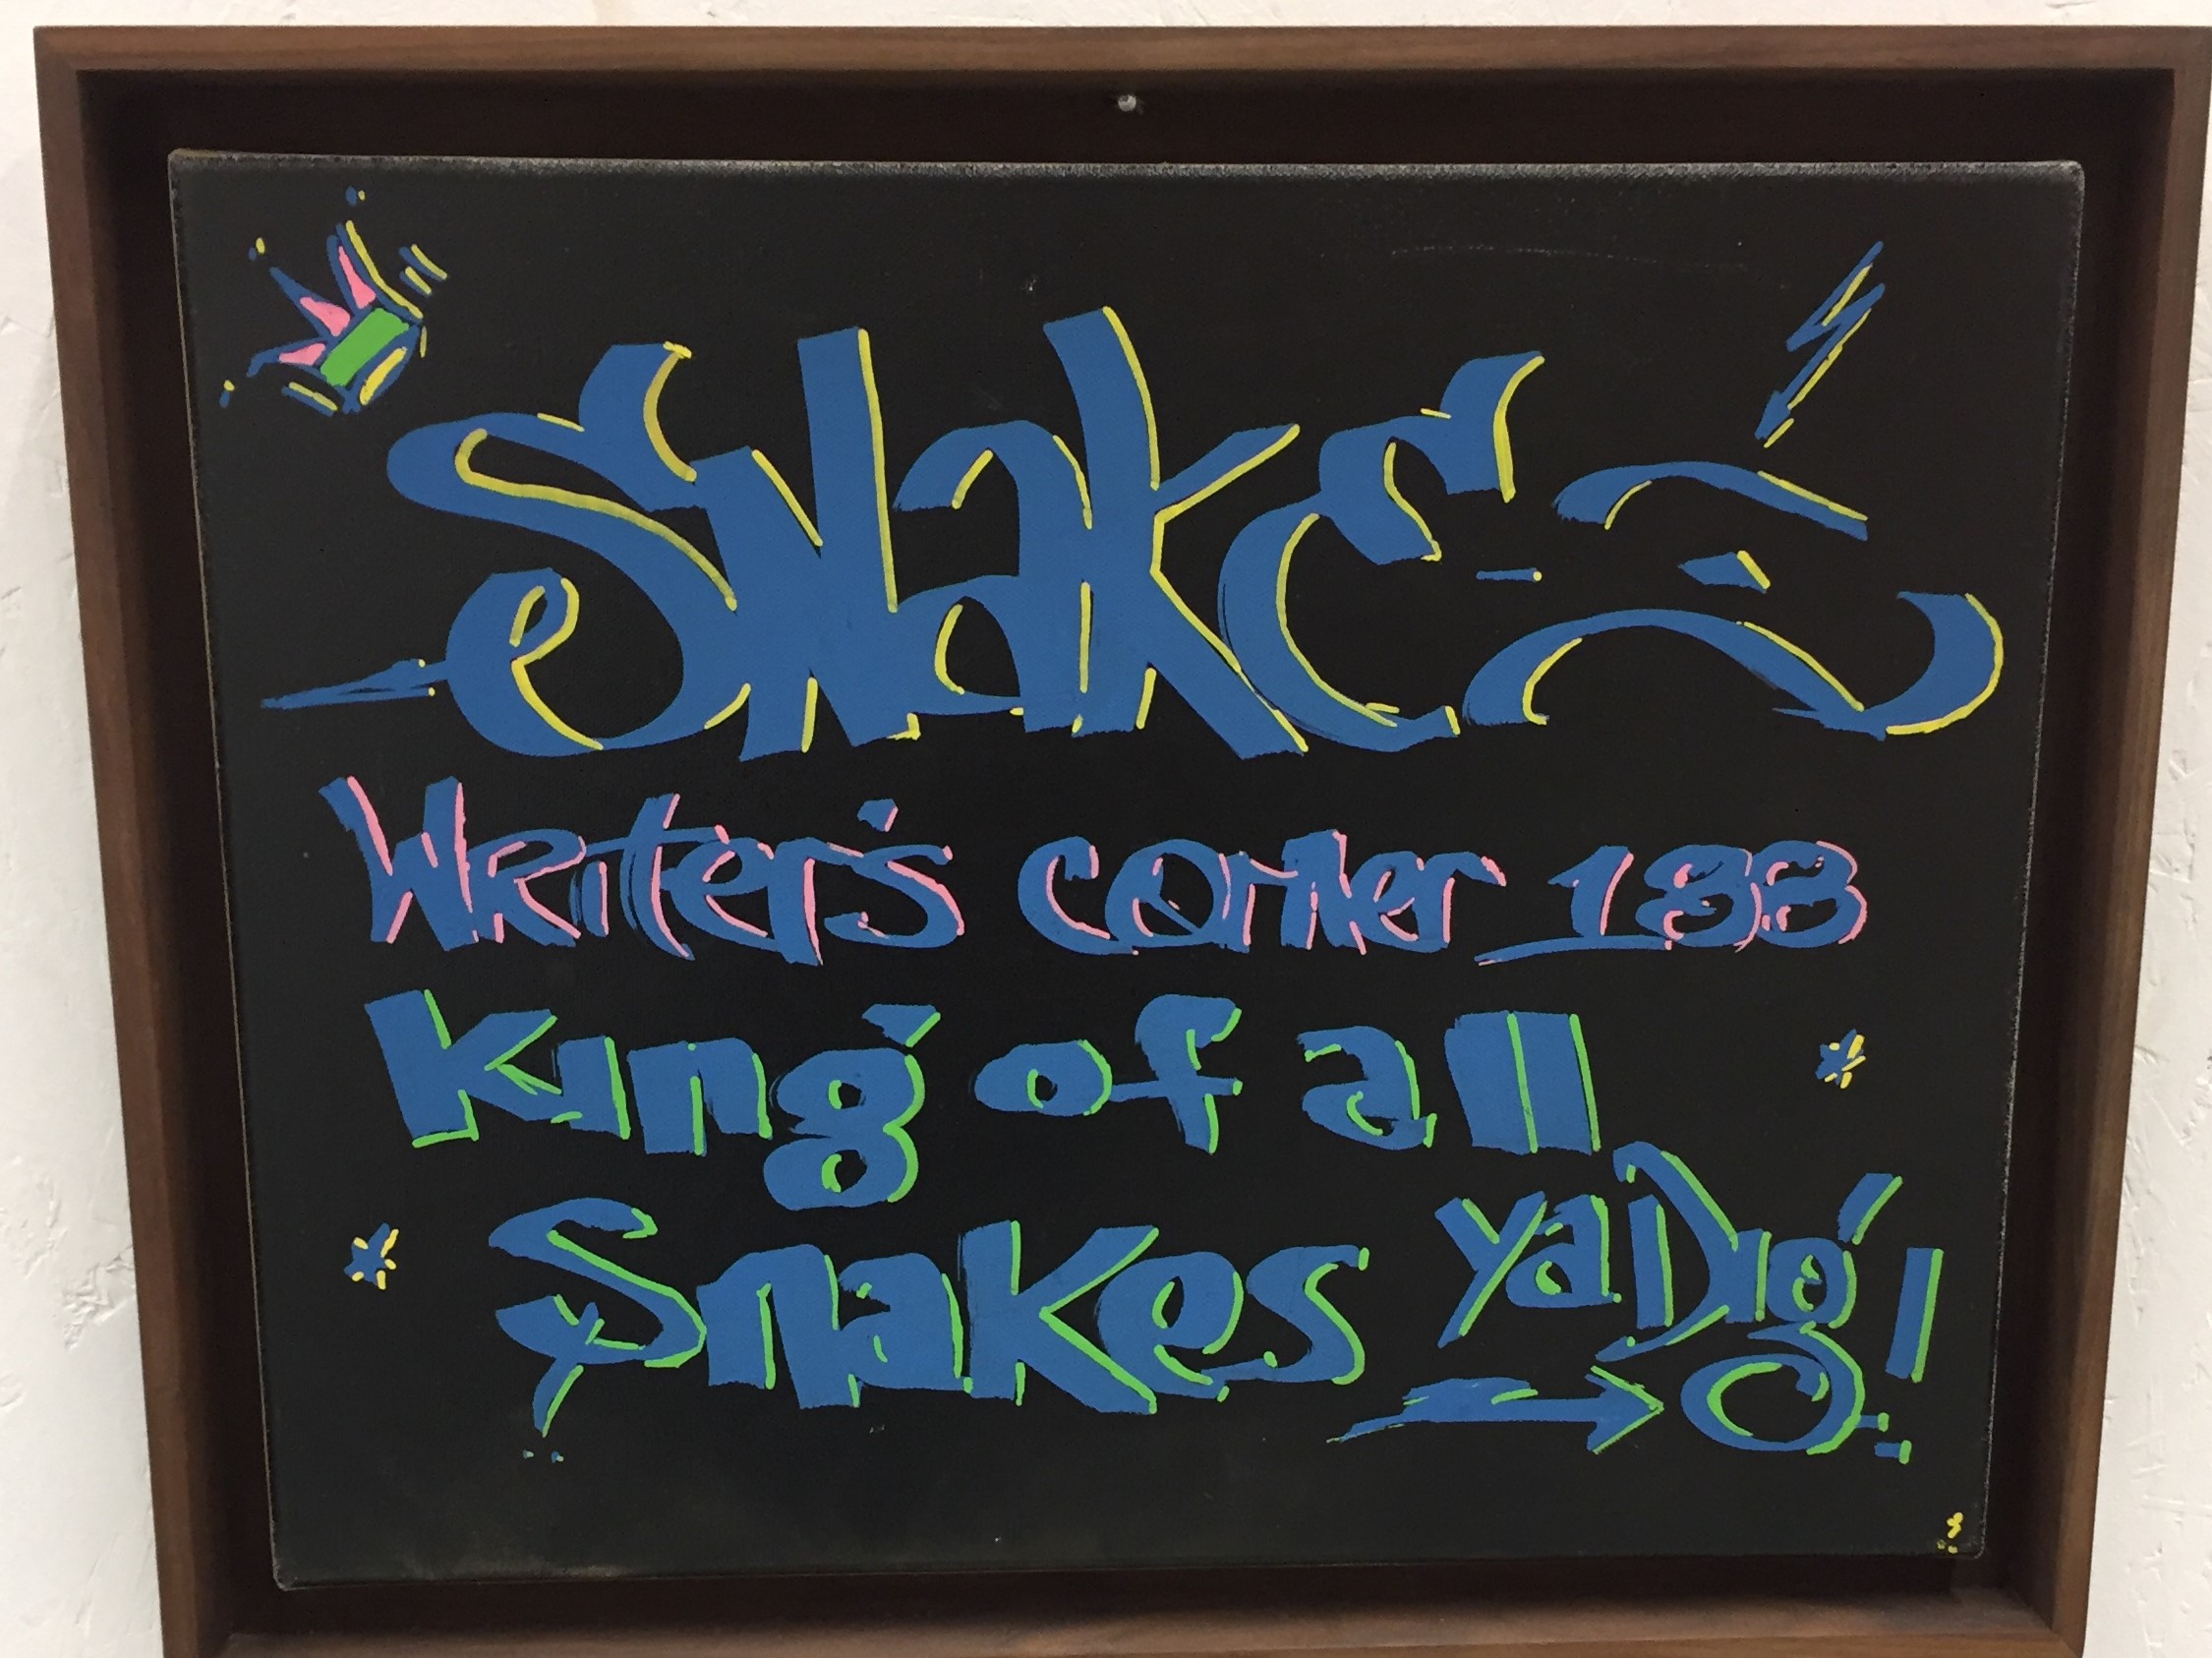 SNake
Writer's corner 188
King of all
Snakes ya Dig!